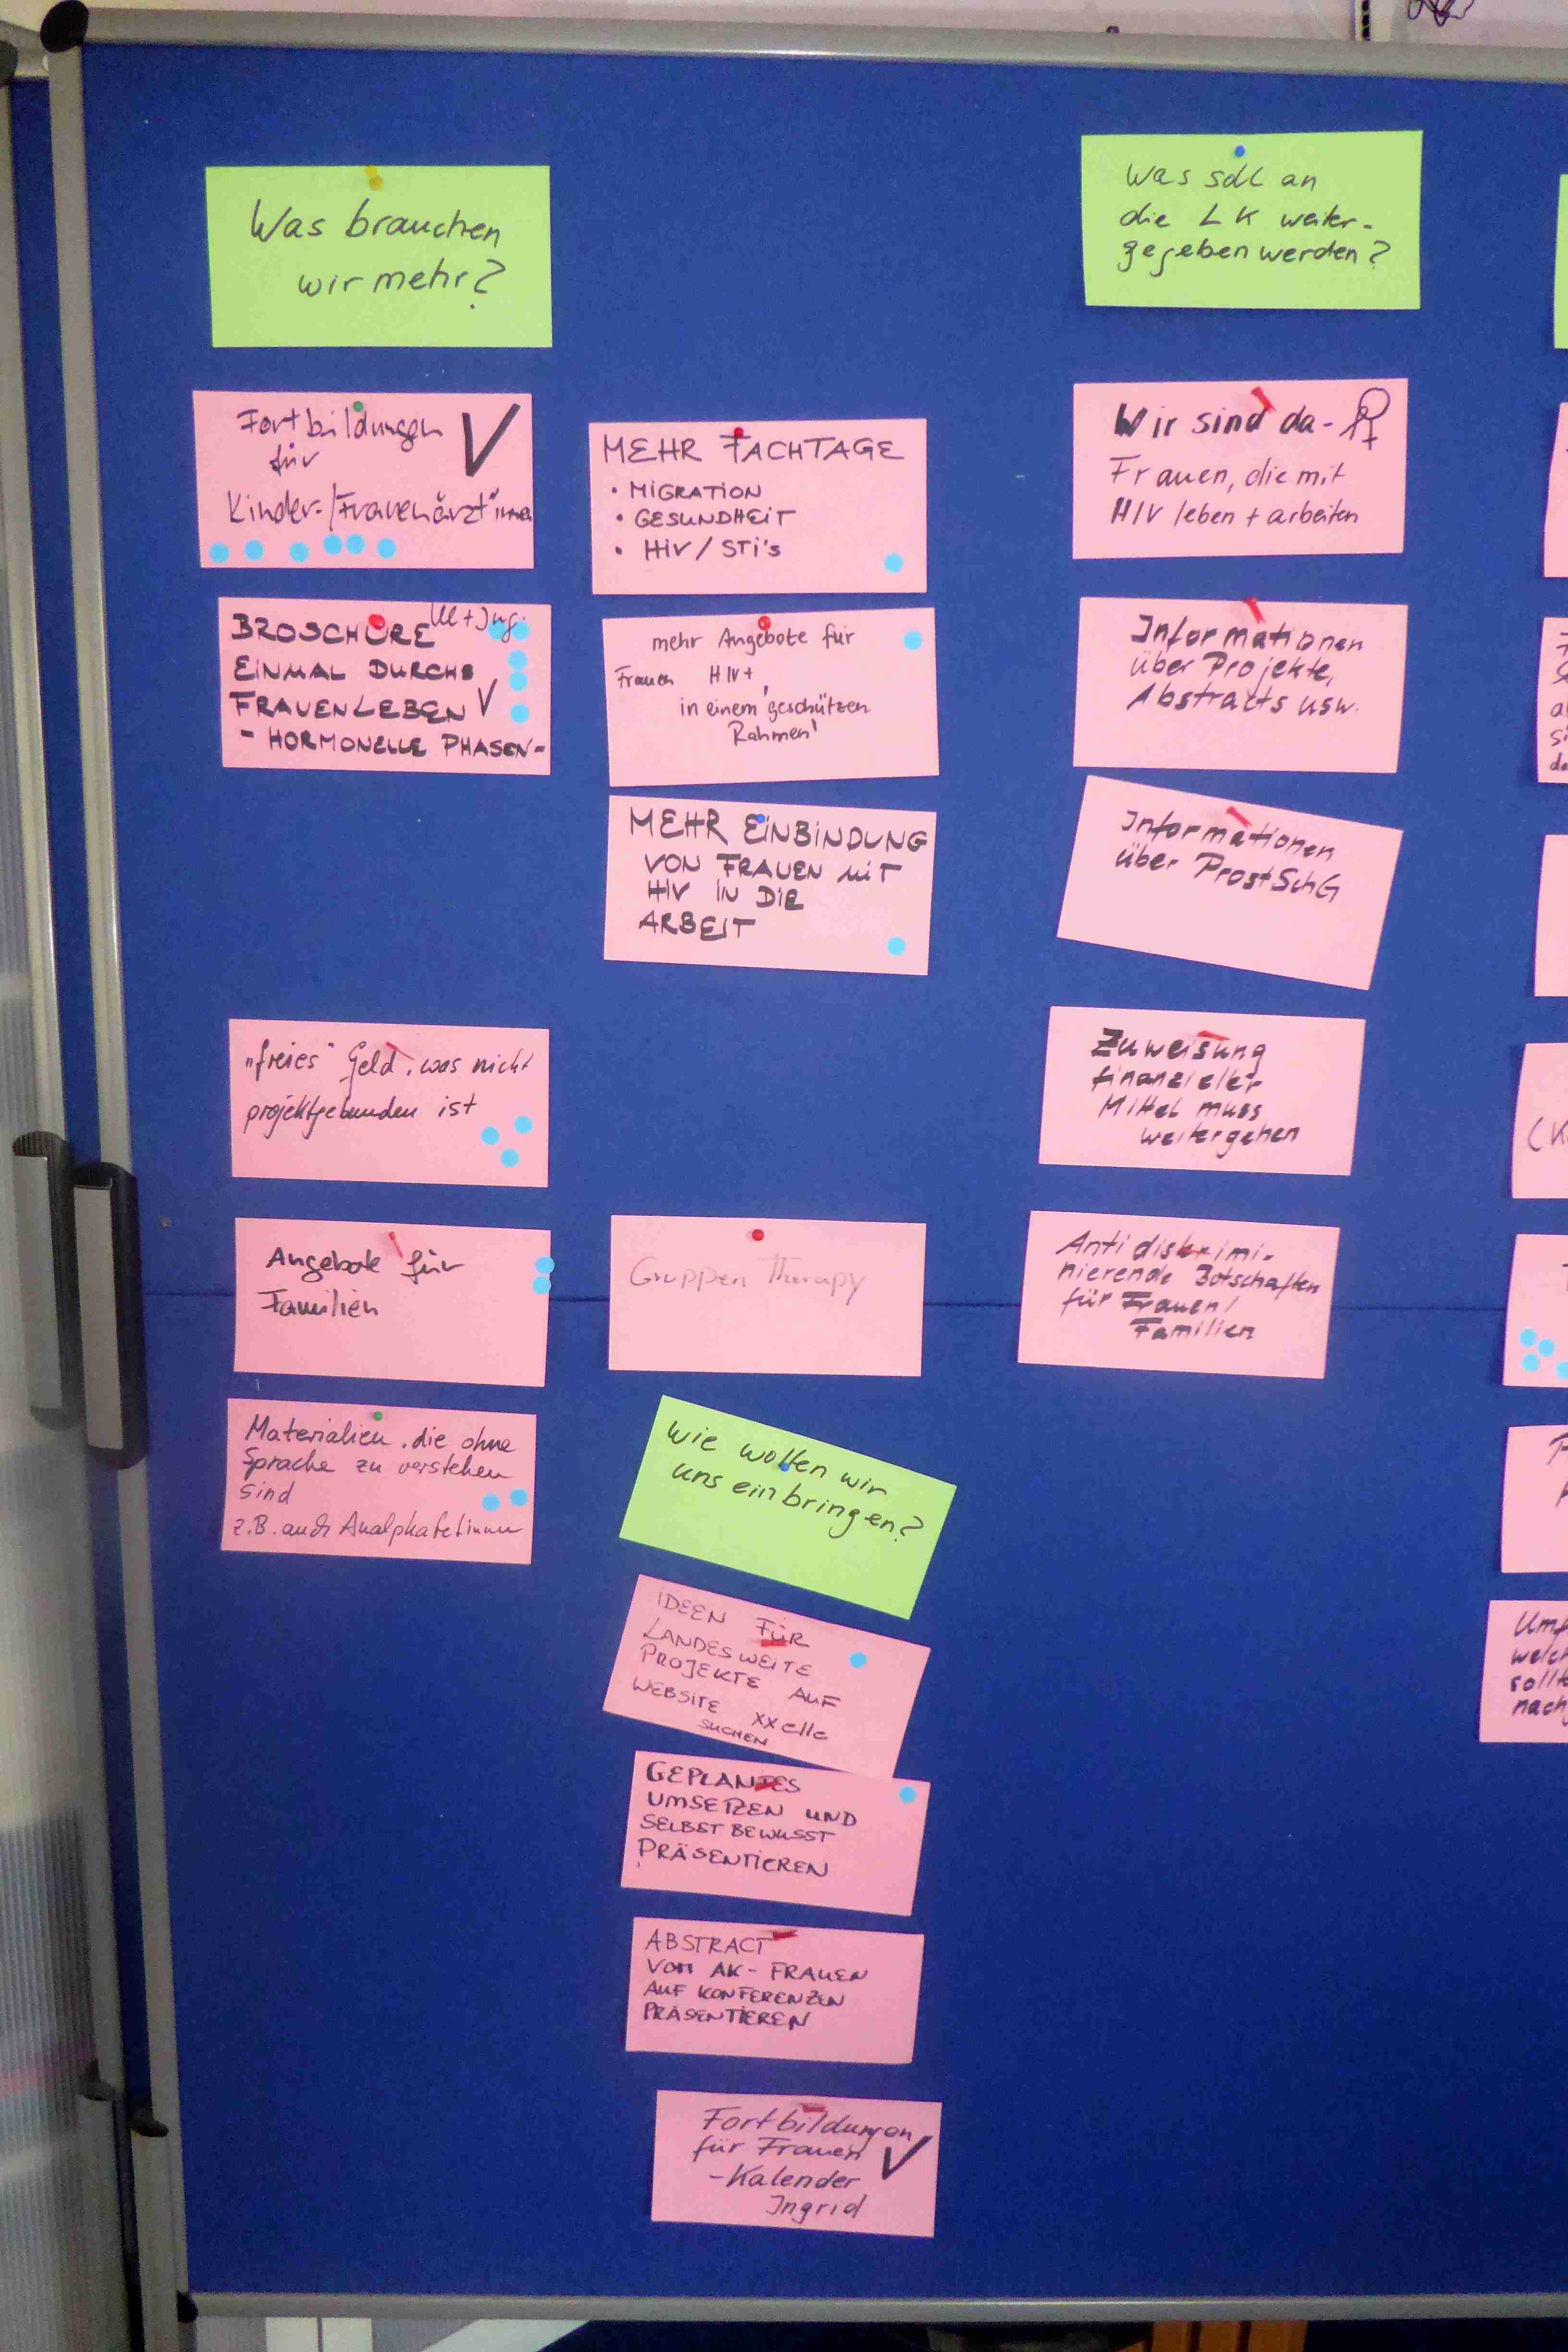 Was brauchen
wir mehr?
Fortbildungen
für
Kinder-/Frauenärzt*innen
BROSCHÜRE
EINMAL DURCHS
FRAUENLEBEN
- HORMONELLE PHASEN -
"freies" Geld, was nicht
projektgebunden ist
Angebote für
Familien
Materialien, die ohne
Sprache zu verstehen
sind
z.B. auch Analphabetinnen
MEHR FACHTAGE
• MIGRATION
• GESUNDHEIT
• HIV / STI's
mehr Angebote für
Frauen HIV+,
in einem 'geschützen
Rahmen'
MEHR EINBINDUNG
VON FRAUEN MIT
HIV IN DIE
ARBEIT
Gruppen Therapy
Wie wollen wir
uns einbringen?
IDEEN FÜR
LANDESWEITE
PROJEKTE AUF
WEBSITE XXelle
SUCHEN
GEPLANTES
UMSETZEN UND
SELBST BEWUSST
PRÄSENTIEREN
ABSTRACT
VOM AK-FRAUEN
AUF KONFERENZEN
PRÄSENTIEREN
Fortbildungen
für Frauen
-Kalender
Ingrid
Was soll an
die LK weiter-
gegeben werden?
Wir sind da-
Frauen, die mit
HIV leben + arbeiten
Informationen
über Projekte,
Abstracts usw.
Informationen
über ProstSchG
Zuweisung
finanzieller
Mittel muss
weitergehen
Antidiskrimi-
nierende Botschaften
für Frauen/
Familien